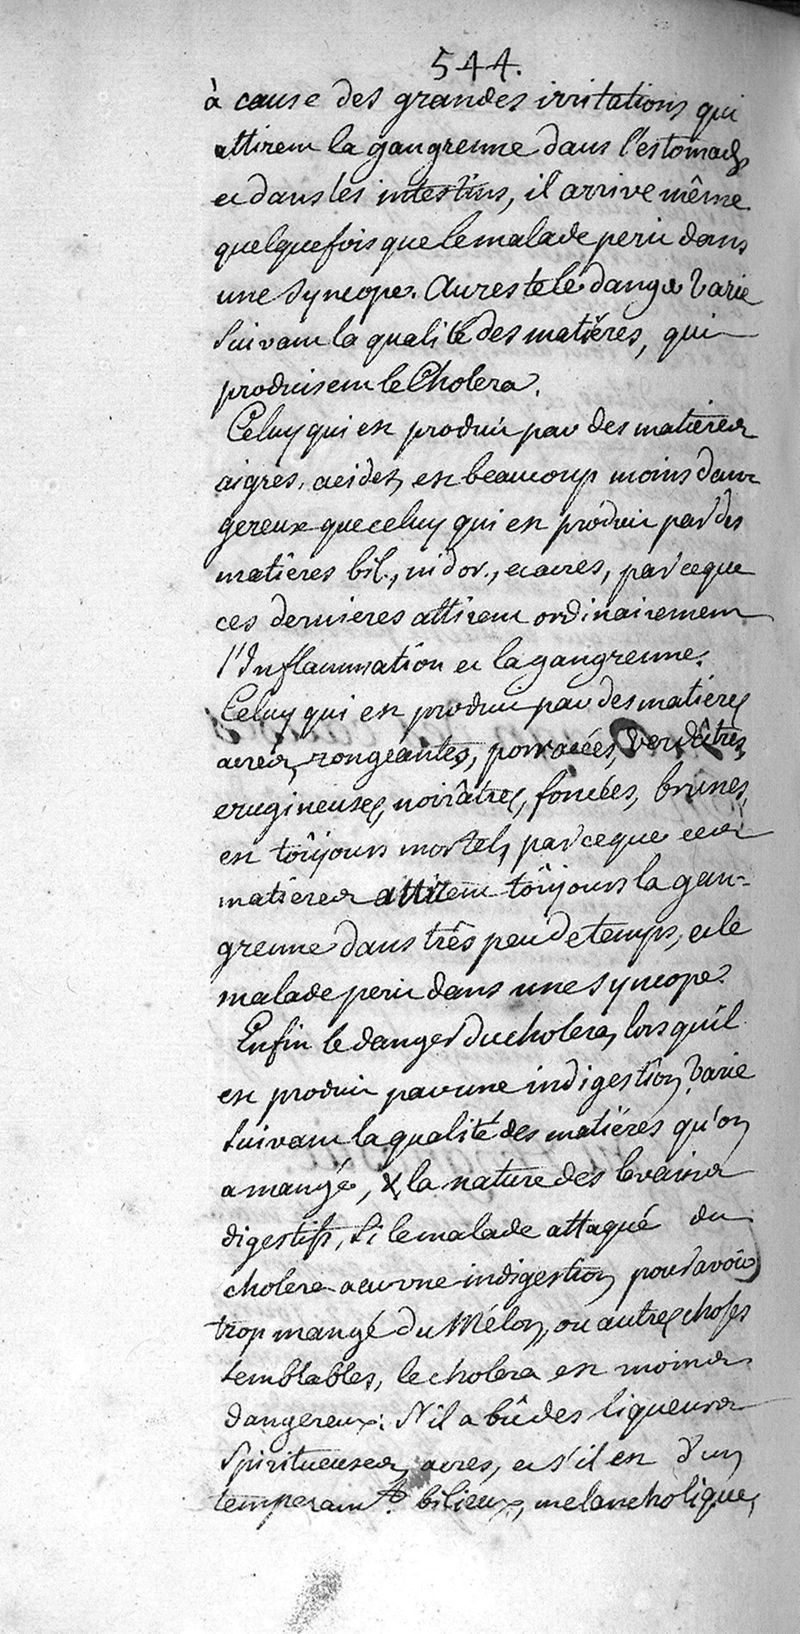 544.
à cause des grandes irritations qui
attirent la gangrenne dans l'estomach,
et dans les intestins, il arrive même
quelquefois que le malade perit dans
une syncope. Au reste le danger varie
suivant la qualité des matières, qui
produisent le Cholera.
Celuy qui est produit par des matieres
aigres, acides, est beaucoup moins dan-
gereux que celuy qui est produit par des
matières bil., nidor., et acres, par ce que
ces dernieres attirent ordinairement
l'Inflammation et la gangrenne.
Celuy qui est produit par des matieres
acres, rongeantes, porracées, verdâtres,
erugineuses, noirâtres, foncées, brunes,
est toûjours mortel, par ce que ces
matieres attirent toûjours la gan-
grenne dans très peu de temps, et le
malade perit dans une syncope.
Enfin le danger du cholera, lorsqu'il
est produit par une indigestion, varie
suivant la qualité des matières qu'on
a mangé, & la nature des levains
digestifs, si le malade attaqué du
cholera a eu une indigestion pour avoir
trop mangé du Mélon, ou autres choses
semblables, le cholera est moins
dangereux: S'il a bû des liqueurs
spiritueuses, acres, et s'il est d'un
temperamt. bilieux, melancholique,